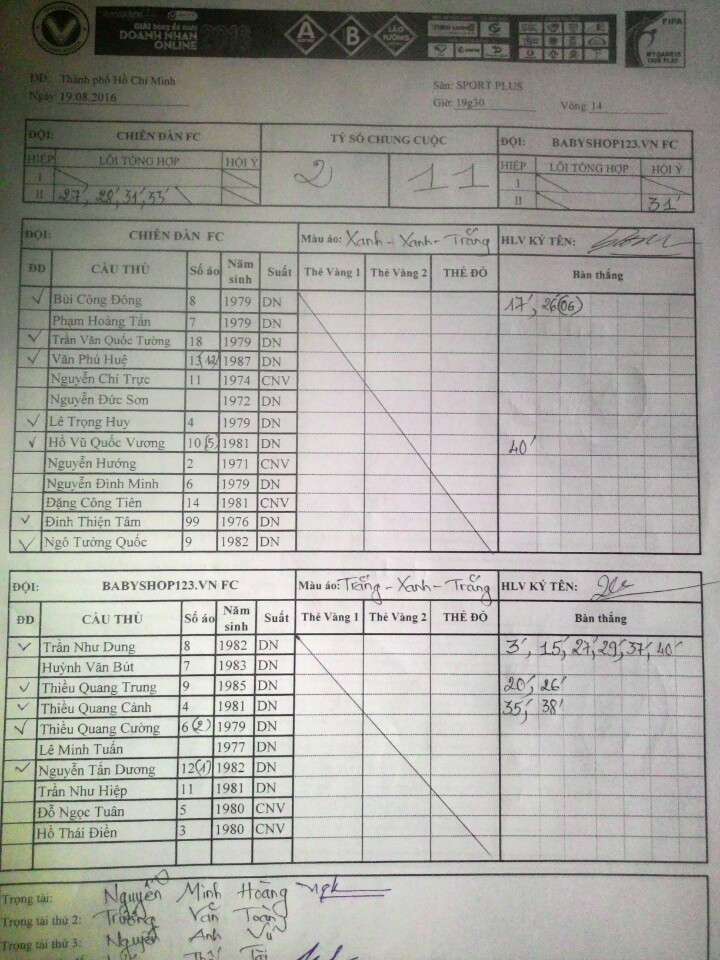 GIẢI bóng đá mini
DOANH NHÂN
ONLINE 2016
A B LÁO TƯỚNG
FIFA
MY GAME IS
FAIR PLAY
ĐD: Thành phố Hồ Chí Minh Sân: SPORT PLUS
Ngày 19.08.2016 Giờ: 19g30 Vòng: 14
ĐỘI: CHIẾN ĐÀN FC TỶ SỐ CHUNG CUỘC ĐỘI: BABYSHOP123.VN FC
HIỆP LỖI TỔNG HỢP HỘI Ý 2 11 HIỆP LỖI TỔNG HỢP HỘI Ý
I I
II 27', 28', 31', 33' II 31'
ĐỘI: CHIẾN ĐÀN FC Màu áo: Xanh - Xanh - Trắng HLV KÝ TÊN:
ĐD CẦU THỦ Số áo Năm sinh Suất Thẻ Vàng 1 Thẻ Vàng 2 THẺ ĐỎ Bàn thắng
✓ Bùi Công Đông 8 1979 DN 17', 26'(06)
Phạm Hoàng Tấn 7 1979 DN
✓ Trần Văn Quốc Tường 18 1979 DN
✓ Văn Phú Huệ 13(12) 1987 DN
Nguyễn Chí Trực 11 1974 CNV
Nguyễn Đức Sơn 1972 DN
✓ Lê Trọng Huy 4 1979 DN
✓ Hồ Vũ Quốc Vương 10(5) 1981 DN 40'
Nguyễn Hướng 2 1971 CNV
Nguyễn Đình Minh 6 1979 DN
Đặng Công Tiên 14 1981 CNV
✓ Đinh Thiện Tâm 99 1976 DN
✓ Ngô Tường Quốc 9 1982 DN
ĐỘI: BABYSHOP123.VN FC Màu áo: Trắng - Xanh - Trắng HLV KÝ TÊN:
ĐD CẦU THỦ Số áo Năm sinh Suất Thẻ Vàng 1 Thẻ Vàng 2 THẺ ĐỎ Bàn thắng
✓ Trần Như Dung 8 1982 DN 3', 15', 27', 29', 37', 40'
Huỳnh Văn Bút 7 1983 DN
✓ Thiều Quang Trung 9 1985 DN 20', 26'
✓ Thiều Quang Cảnh 4 1981 DN 35', 38'
✓ Thiều Quang Cường 6(2) 1979 DN
Lê Minh Tuấn 1977 DN
✓ Nguyễn Tấn Dương 12(1) 1982 DN
Trần Như Hiệp 11 1981 DN
Đỗ Ngọc Tuân 5 1980 CNV
Hồ Thái Điền 3 1980 CNV
Trọng tài: Nguyễn Minh Hoàng
Trọng tài thứ 2: Trương Văn Toàn
Trọng tài thứ 3: Nguyễn Anh Vũ
Thái Tài